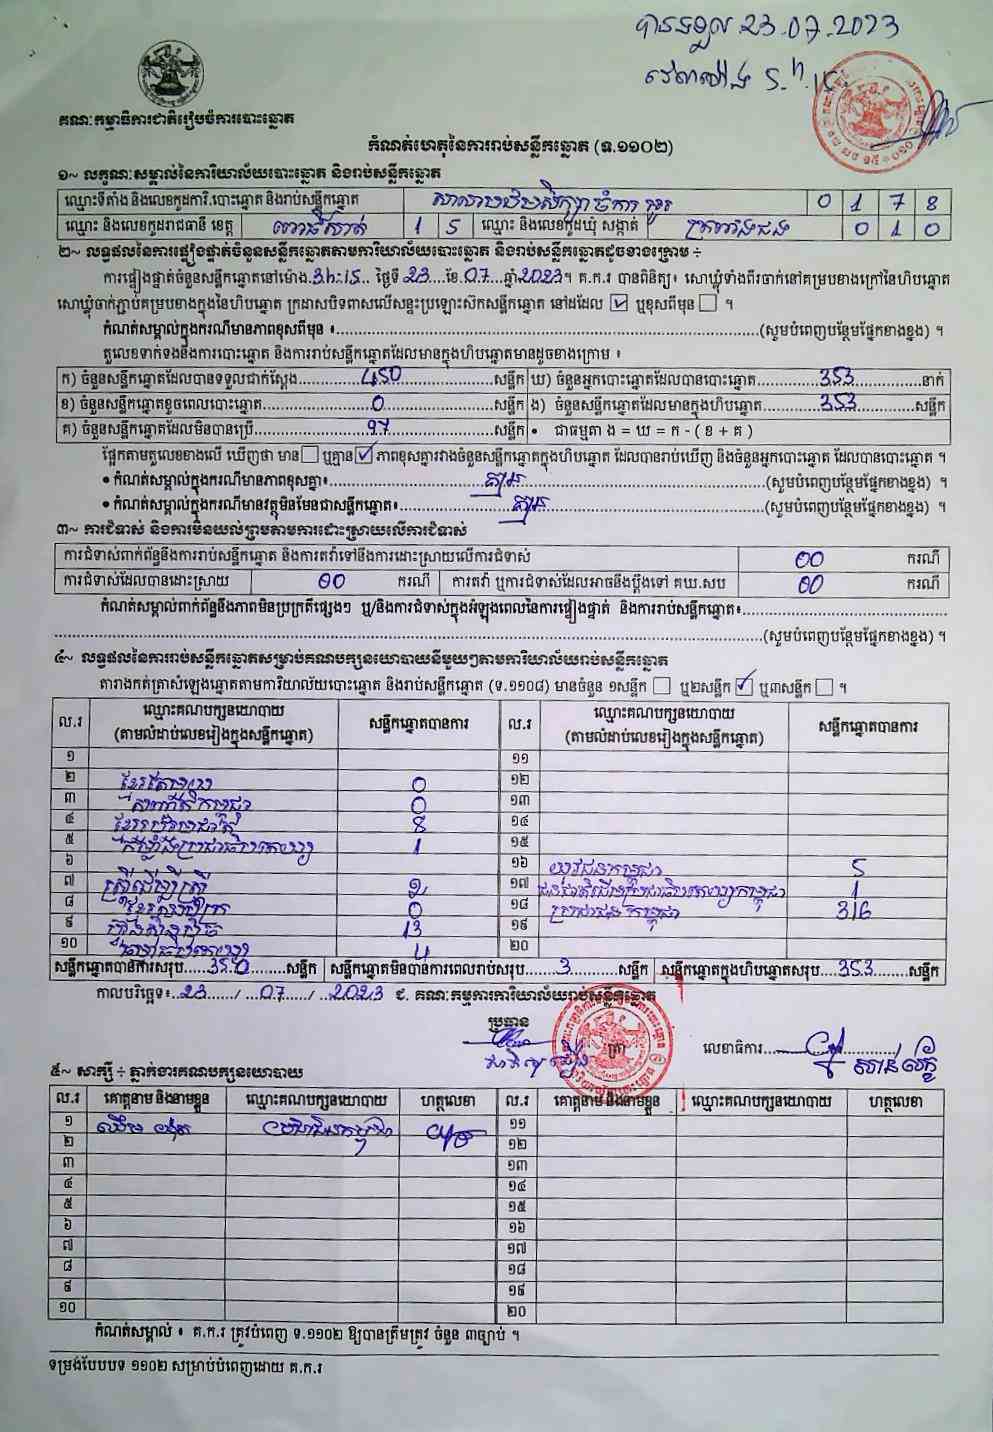 បានទទួល 23.07.2023
វេលាម៉ោង 5.h.15
គណៈកម្មាធិការជាតិរៀបចំការបោះឆ្នោត
កំណត់ហេតុនៃការរាប់សន្លឹកឆ្នោត (ទ.១១០២)
១~ លក្ខណៈសម្គាល់នៃការិយាល័យបោះឆ្នោត និងរាប់សន្លឹកឆ្នោត
ឈ្មោះទីតាំង និងលេខកូដការិ.បោះឆ្នោត និងរាប់សន្លឹកឆ្នោត សាលាបឋមសិក្សាចំការ 0 1 7 8
ឈ្មោះ និងលេខកូដរាជធានី ខេត្ត ពោធិ៍សាត់ 1 5 ឈ្មោះ និងលេខកូដឃុំ សង្កាត់ 0 1 0
២~ លទ្ធផលនៃការផ្ទៀងផ្ទាត់ចំនួនសន្លឹកឆ្នោតតាមការិយាល័យបោះឆ្នោត និងរាប់សន្លឹកឆ្នោតដូចខាងក្រោម ÷
ការផ្ទៀងផ្ទាត់ចំនួនសន្លឹកឆ្នោតនៅម៉ោង 3h:15 ថ្ងៃទី 23 ខែ 07 ឆ្នាំ 2023។ គ.ក.រ បានពិនិត្យ៖ សោឃ្លុំទាំងពីរចាក់នៅគម្របខាងក្រៅនៃហិបឆ្នោត
សោឃ្លុំចាក់ភ្ជាប់គម្របខាងក្នុងនៃហិបឆ្នោត ក្រដាសបិទពាសលើសន្ទះប្រឡោះស៊កសន្លឹកឆ្នោត នៅដដែល ☑ ឬខុសពីមុន ☐ ។
កំណត់សម្គាល់ក្នុងករណីមានភាពខុសពីមុន ៖ (សូមបំពេញបន្ថែមផ្នែកខាងខ្នង) ។
តួលេខទាក់ទងនឹងការបោះឆ្នោត និងការរាប់សន្លឹកឆ្នោតដែលមានក្នុងហិបឆ្នោតមានដូចខាងក្រោម ៖
ក) ចំនួនសន្លឹកឆ្នោតដែលបានទទួលជាក់ស្តែង 450 សន្លឹក ឃ) ចំនួនអ្នកបោះឆ្នោតដែលបានបោះឆ្នោត 353 នាក់
ខ) ចំនួនសន្លឹកឆ្នោតខូចពេលបោះឆ្នោត 0 សន្លឹក ង) ចំនួនសន្លឹកឆ្នោតដែលមានក្នុងហិបឆ្នោត 353 សន្លឹក
គ) ចំនួនសន្លឹកឆ្នោតដែលមិនបានប្រើ 97 សន្លឹក • ជាធម្មតា ង = ឃ = ក - ( ខ + គ )
ផ្អែកតាមតួលេខខាងលើ ឃើញថា មាន ☐ ឬគ្មាន ☑ ភាពខុសគ្នារវាងចំនួនសន្លឹកឆ្នោតក្នុងហិបឆ្នោត ដែលបានរាប់ឃើញ និងចំនួនអ្នកបោះឆ្នោត ដែលបានបោះឆ្នោត ។
• កំណត់សម្គាល់ក្នុងករណីមានភាពខុសគ្នា៖ គ្មាន (សូមបំពេញបន្ថែមផ្នែកខាងខ្នង) ។
• កំណត់សម្គាល់ក្នុងករណីមានវត្ថុមិនមែនជាសន្លឹកឆ្នោត៖ គ្មាន (សូមបំពេញបន្ថែមផ្នែកខាងខ្នង) ។
៣~ ការជំទាស់ និងការមិនយល់ព្រមតាមការដោះស្រាយលើការជំទាស់
ការជំទាស់ពាក់ព័ន្ធនឹងការរាប់សន្លឹកឆ្នោត និងការតវ៉ាទៅនឹងការដោះស្រាយលើការជំទាស់ 00 ករណី
ការជំទាស់ដែលបានដោះស្រាយ 00 ករណី ការតវ៉ា ឬការជំទាស់ដែលអាចនឹងប្តឹងទៅ គឃ.សប 00 ករណី
កំណត់សម្គាល់ពាក់ព័ន្ធនឹងភាពមិនប្រក្រតីផ្សេងៗ ឬ/និងការជំទាស់ក្នុងអំឡុងពេលនៃការផ្ទៀងផ្ទាត់ និងការរាប់សន្លឹកឆ្នោត៖
(សូមបំពេញបន្ថែមផ្នែកខាងខ្នង) ។
៤~ លទ្ធផលនៃការរាប់សន្លឹកឆ្នោតសម្រាប់គណបក្សនយោបាយនីមួយៗតាមការិយាល័យរាប់សន្លឹកឆ្នោត
តារាងកត់ត្រាសំឡេងឆ្នោតតាមការិយាល័យបោះឆ្នោត និងរាប់សន្លឹកឆ្នោត (ទ.១១០៨) មានចំនួន ១សន្លឹក ☐ ឬ២សន្លឹក ☑ ឬ៣សន្លឹក ☐ ។
ល.រ ឈ្មោះគណបក្សនយោបាយ (តាមលំដាប់លេខរៀងក្នុងសន្លឹកឆ្នោត) សន្លឹកឆ្នោតបានការ ល.រ ឈ្មោះគណបក្សនយោបាយ (តាមលំដាប់លេខរៀងក្នុងសន្លឹកឆ្នោត) សន្លឹកឆ្នោតបានការ
១ ១១
២ ខ្មែរតែមួយ 0 ១២
៣ 0 ១៣
៤ 8 ១៤
៥ 1 ១៥
៦ ១៦ យុវជនកម្ពុជា 5
៧ ស្រ្តីដើម្បីស្ត្រី ១៧ ជនជាតិដើមប្រជាធិបតេយ្យកម្ពុជា 1
៨ 0 ១៨ ប្រជាជនកម្ពុជា 316
៩ 13 ១៩
១០ 4 ២០
សន្លឹកឆ្នោតបានការសរុប 350 សន្លឹក សន្លឹកឆ្នោតមិនបានការពេលរាប់សរុប 3 សន្លឹក សន្លឹកឆ្នោតក្នុងហិបឆ្នោតសរុប 353 សន្លឹក
កាលបរិច្ឆេទ៖ 23 / 07 / 2023 ជ. គណៈកម្មការការិយាល័យរាប់សន្លឹកឆ្នោត
ប្រធាន ត្រា លេខាធិការ
៥~ សាក្សី ÷ ភ្នាក់ងារគណបក្សនយោបាយ
ល.រ គោត្តនាម និងនាមខ្លួន ឈ្មោះគណបក្សនយោបាយ ហត្ថលេខា ល.រ គោត្តនាម និងនាមខ្លួន ឈ្មោះគណបក្សនយោបាយ ហត្ថលេខា
១ ១១
២ ១២
៣ ១៣
៤ ១៤
៥ ១៥
៦ ១៦
៧ ១៧
៨ ១៨
៩ ១៩
១០ ២០
កំណត់សម្គាល់ ៖ គ.ក.រ ត្រូវបំពេញ ទ.១១០២ ឱ្យបានត្រឹមត្រូវ ចំនួន ៣ច្បាប់ ។
ទម្រង់បែបបទ ១១០២ សម្រាប់បំពេញដោយ គ.ក.រ